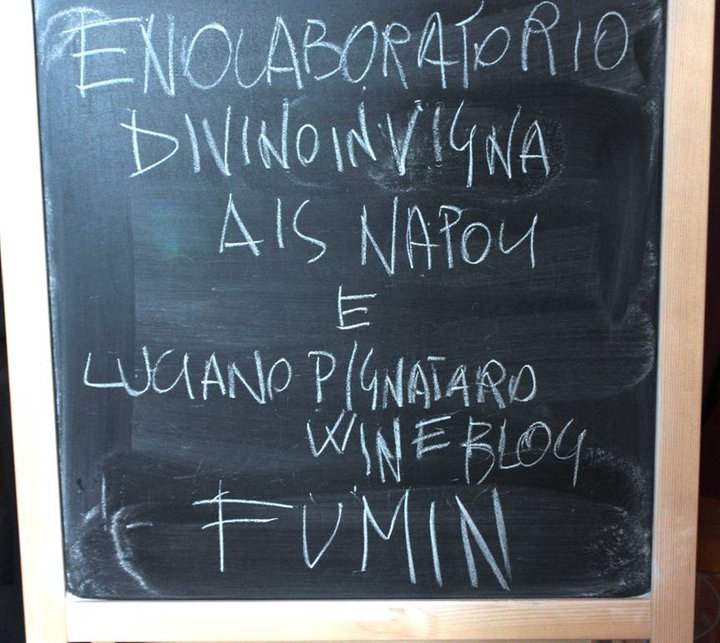 ENOLABORATORIO
DIVINOINVIGNA
AIS NAPOLI
E
LUCIANO PIGNATARO
WINEBLOG
FUMIN